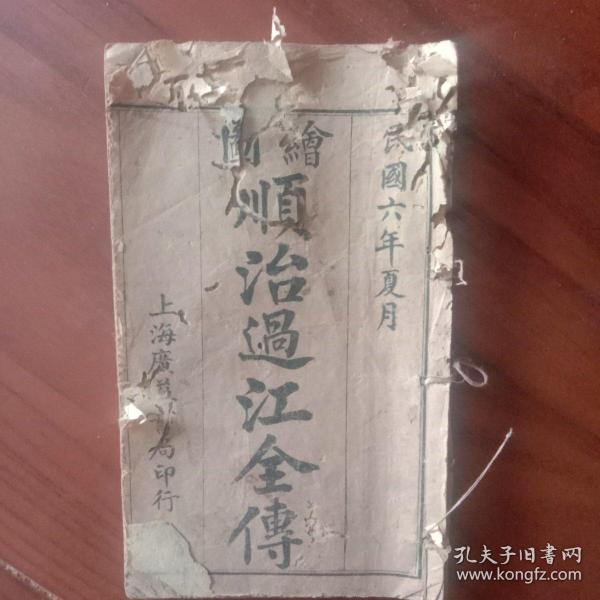 民國六年夏月
繪圖
順治過江全傳
上海廣益書局印行
孔夫子旧书网
www.kongfz.com